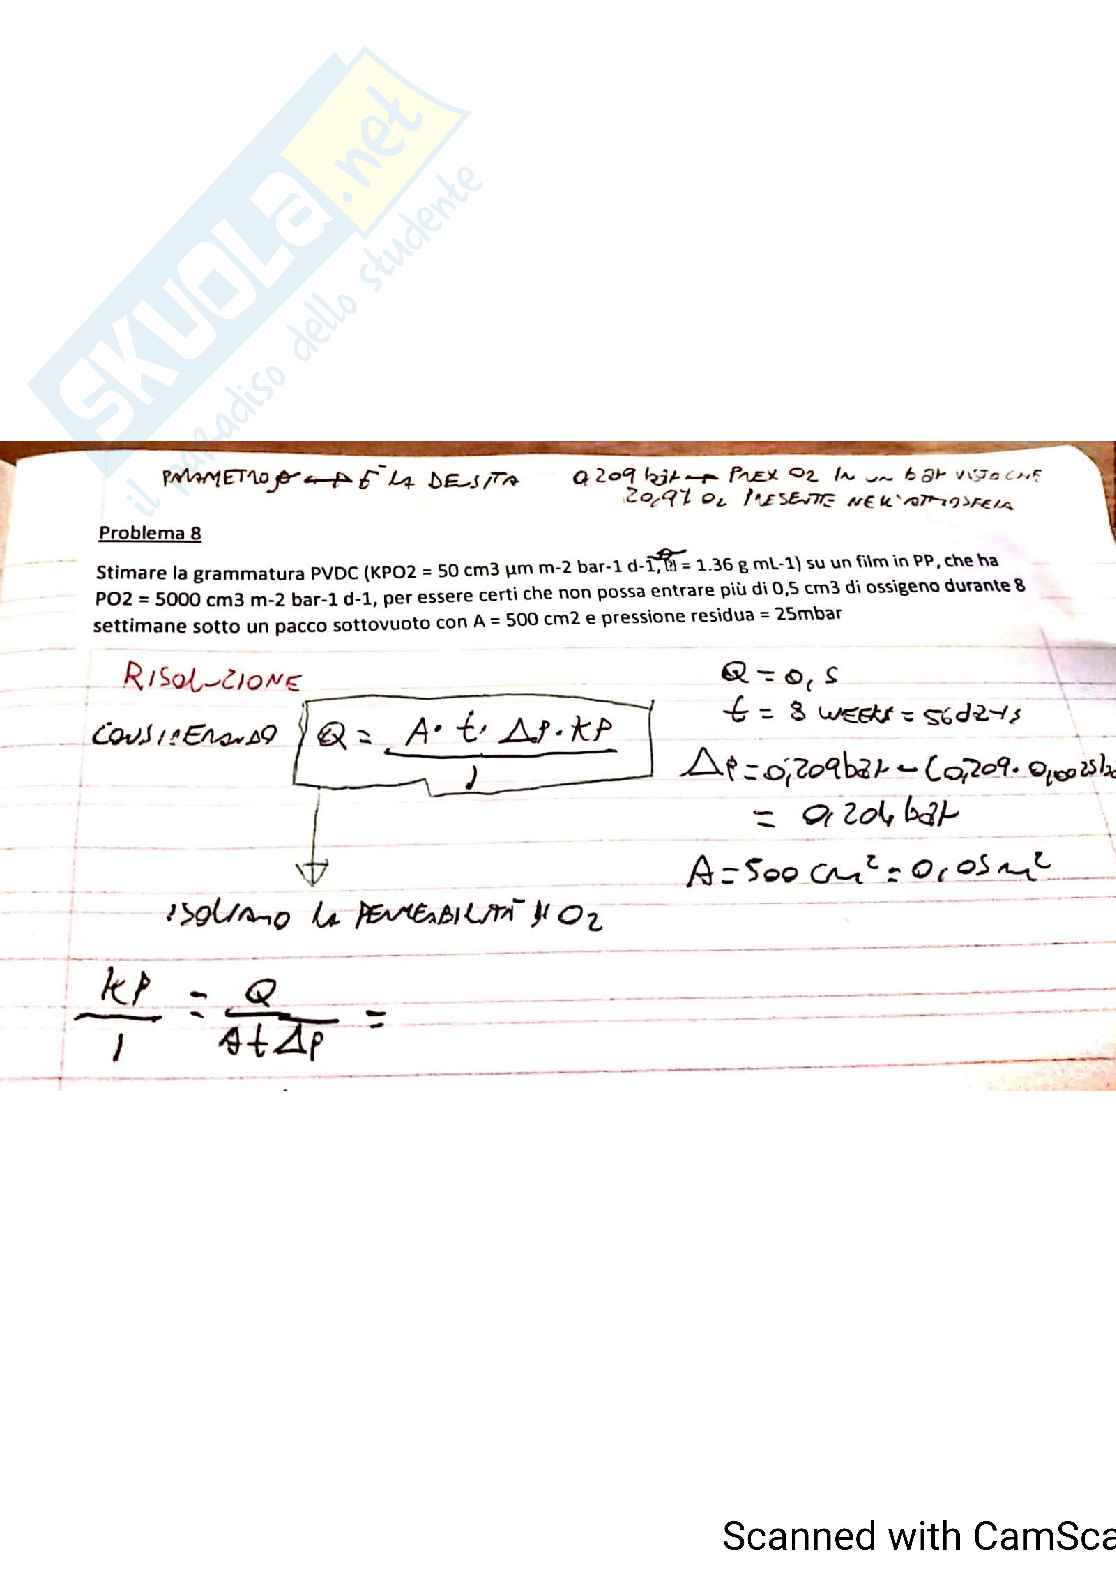 SKUOLA.net
il paradiso dello studente
PARAMETRO ρ → È LA DESITA
0,209 bar → PREX O2 IN UN bar VISTO CHE
20,9% O2 PRESENTE NELL'ATMOSFERA
Problema 8
Stimare la grammatura PVDC (KPO2 = 50 cm3 µm m-2 bar-1 d-1, ρ = 1.36 g mL-1) su un film in PP, che ha
PO2 = 5000 cm3 m-2 bar-1 d-1, per essere certi che non possa entrare più di 0,5 cm3 di ossigeno durante 8
settimane sotto un pacco sottovuoto con A = 500 cm2 e pressione residua = 25mbar
RISOLUZIONE
CONSIDERANDO Q = A· t· Δp· KP / l
Q = 0,5
t = 8 WEEKS = 56 days
Δp = 0,209 bar - (0,209 · 0,0025 ba
= 0,204 bar
A = 500 cm² = 0,05 m²
ISOLIAMO LA PERMEABILITÀ O2
KP / l = Q / A t Δp =
Scanned with CamSca